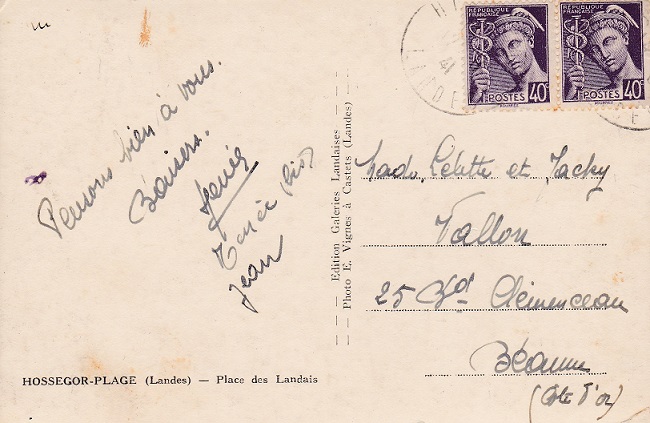 Pensons bien à vous.
Baisers.
Jean
HOSSEGOR-PLAGE (Landes) — Place des Landais
Edition Galeries Landaises
Photo E. Vignes à Castets (Landes)
RÉPUBLIQUE FRANÇAISE
POSTES 40c
RÉPUBLIQUE FRANÇAISE
POSTES 40c
et Jacky
Vallon
25 Bd Clémenceau
Beaune
(Côte d'or)